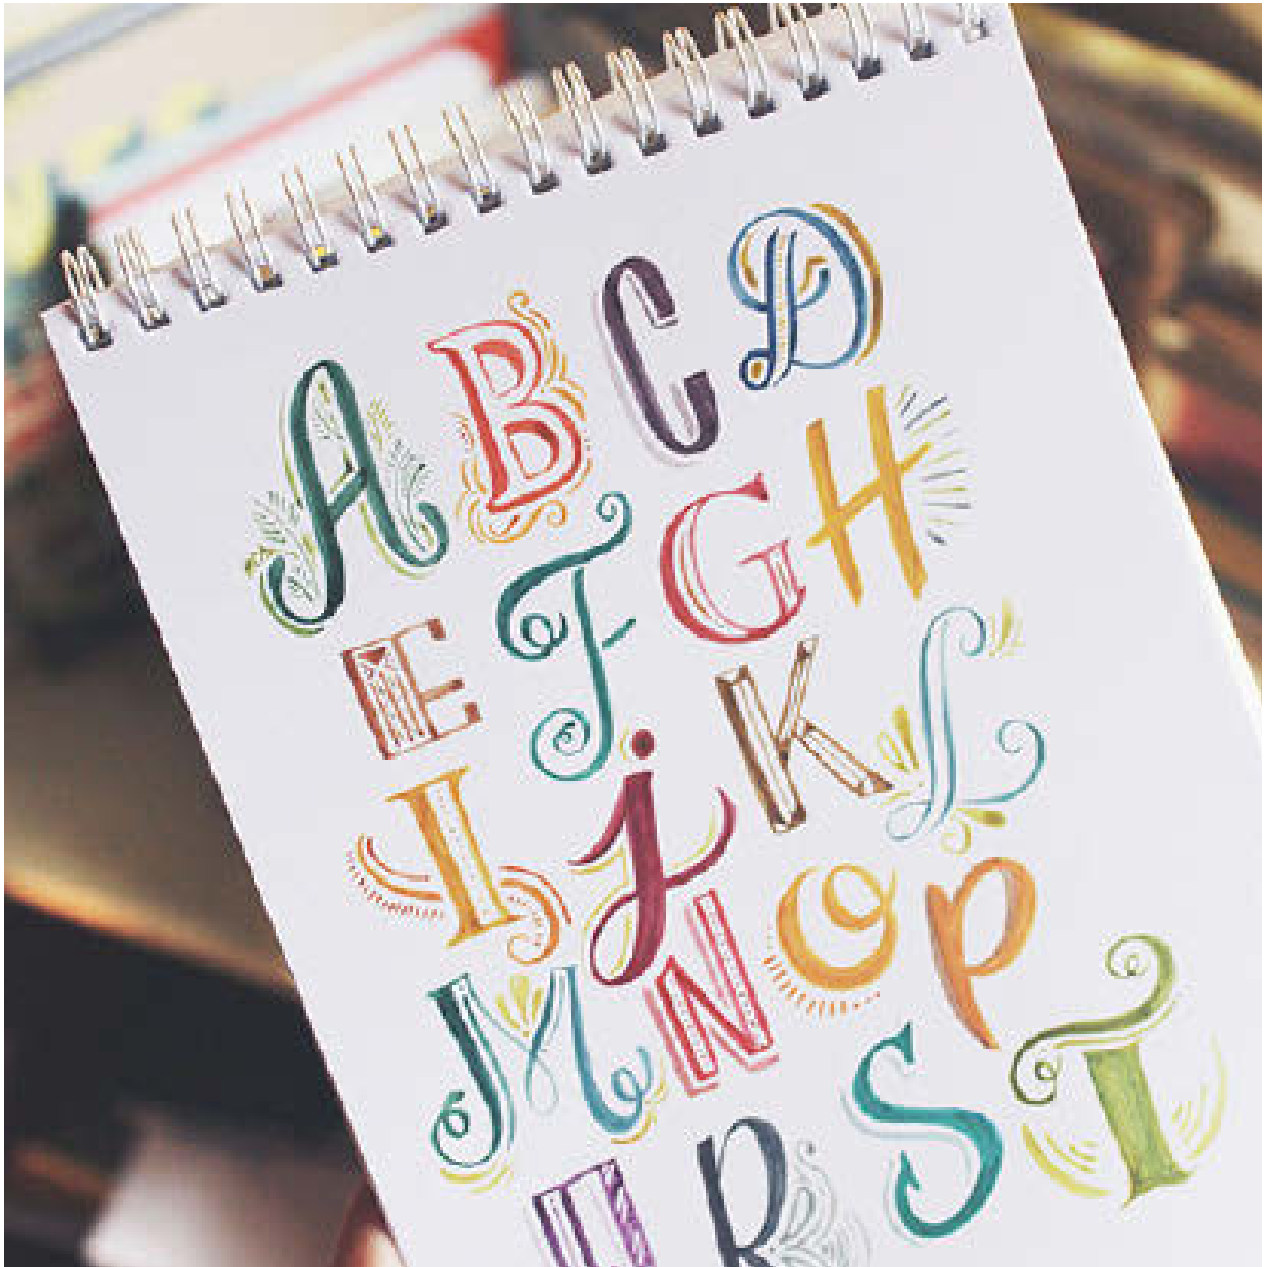 A B C D
E F G H
I j K L
M N O P
R S T